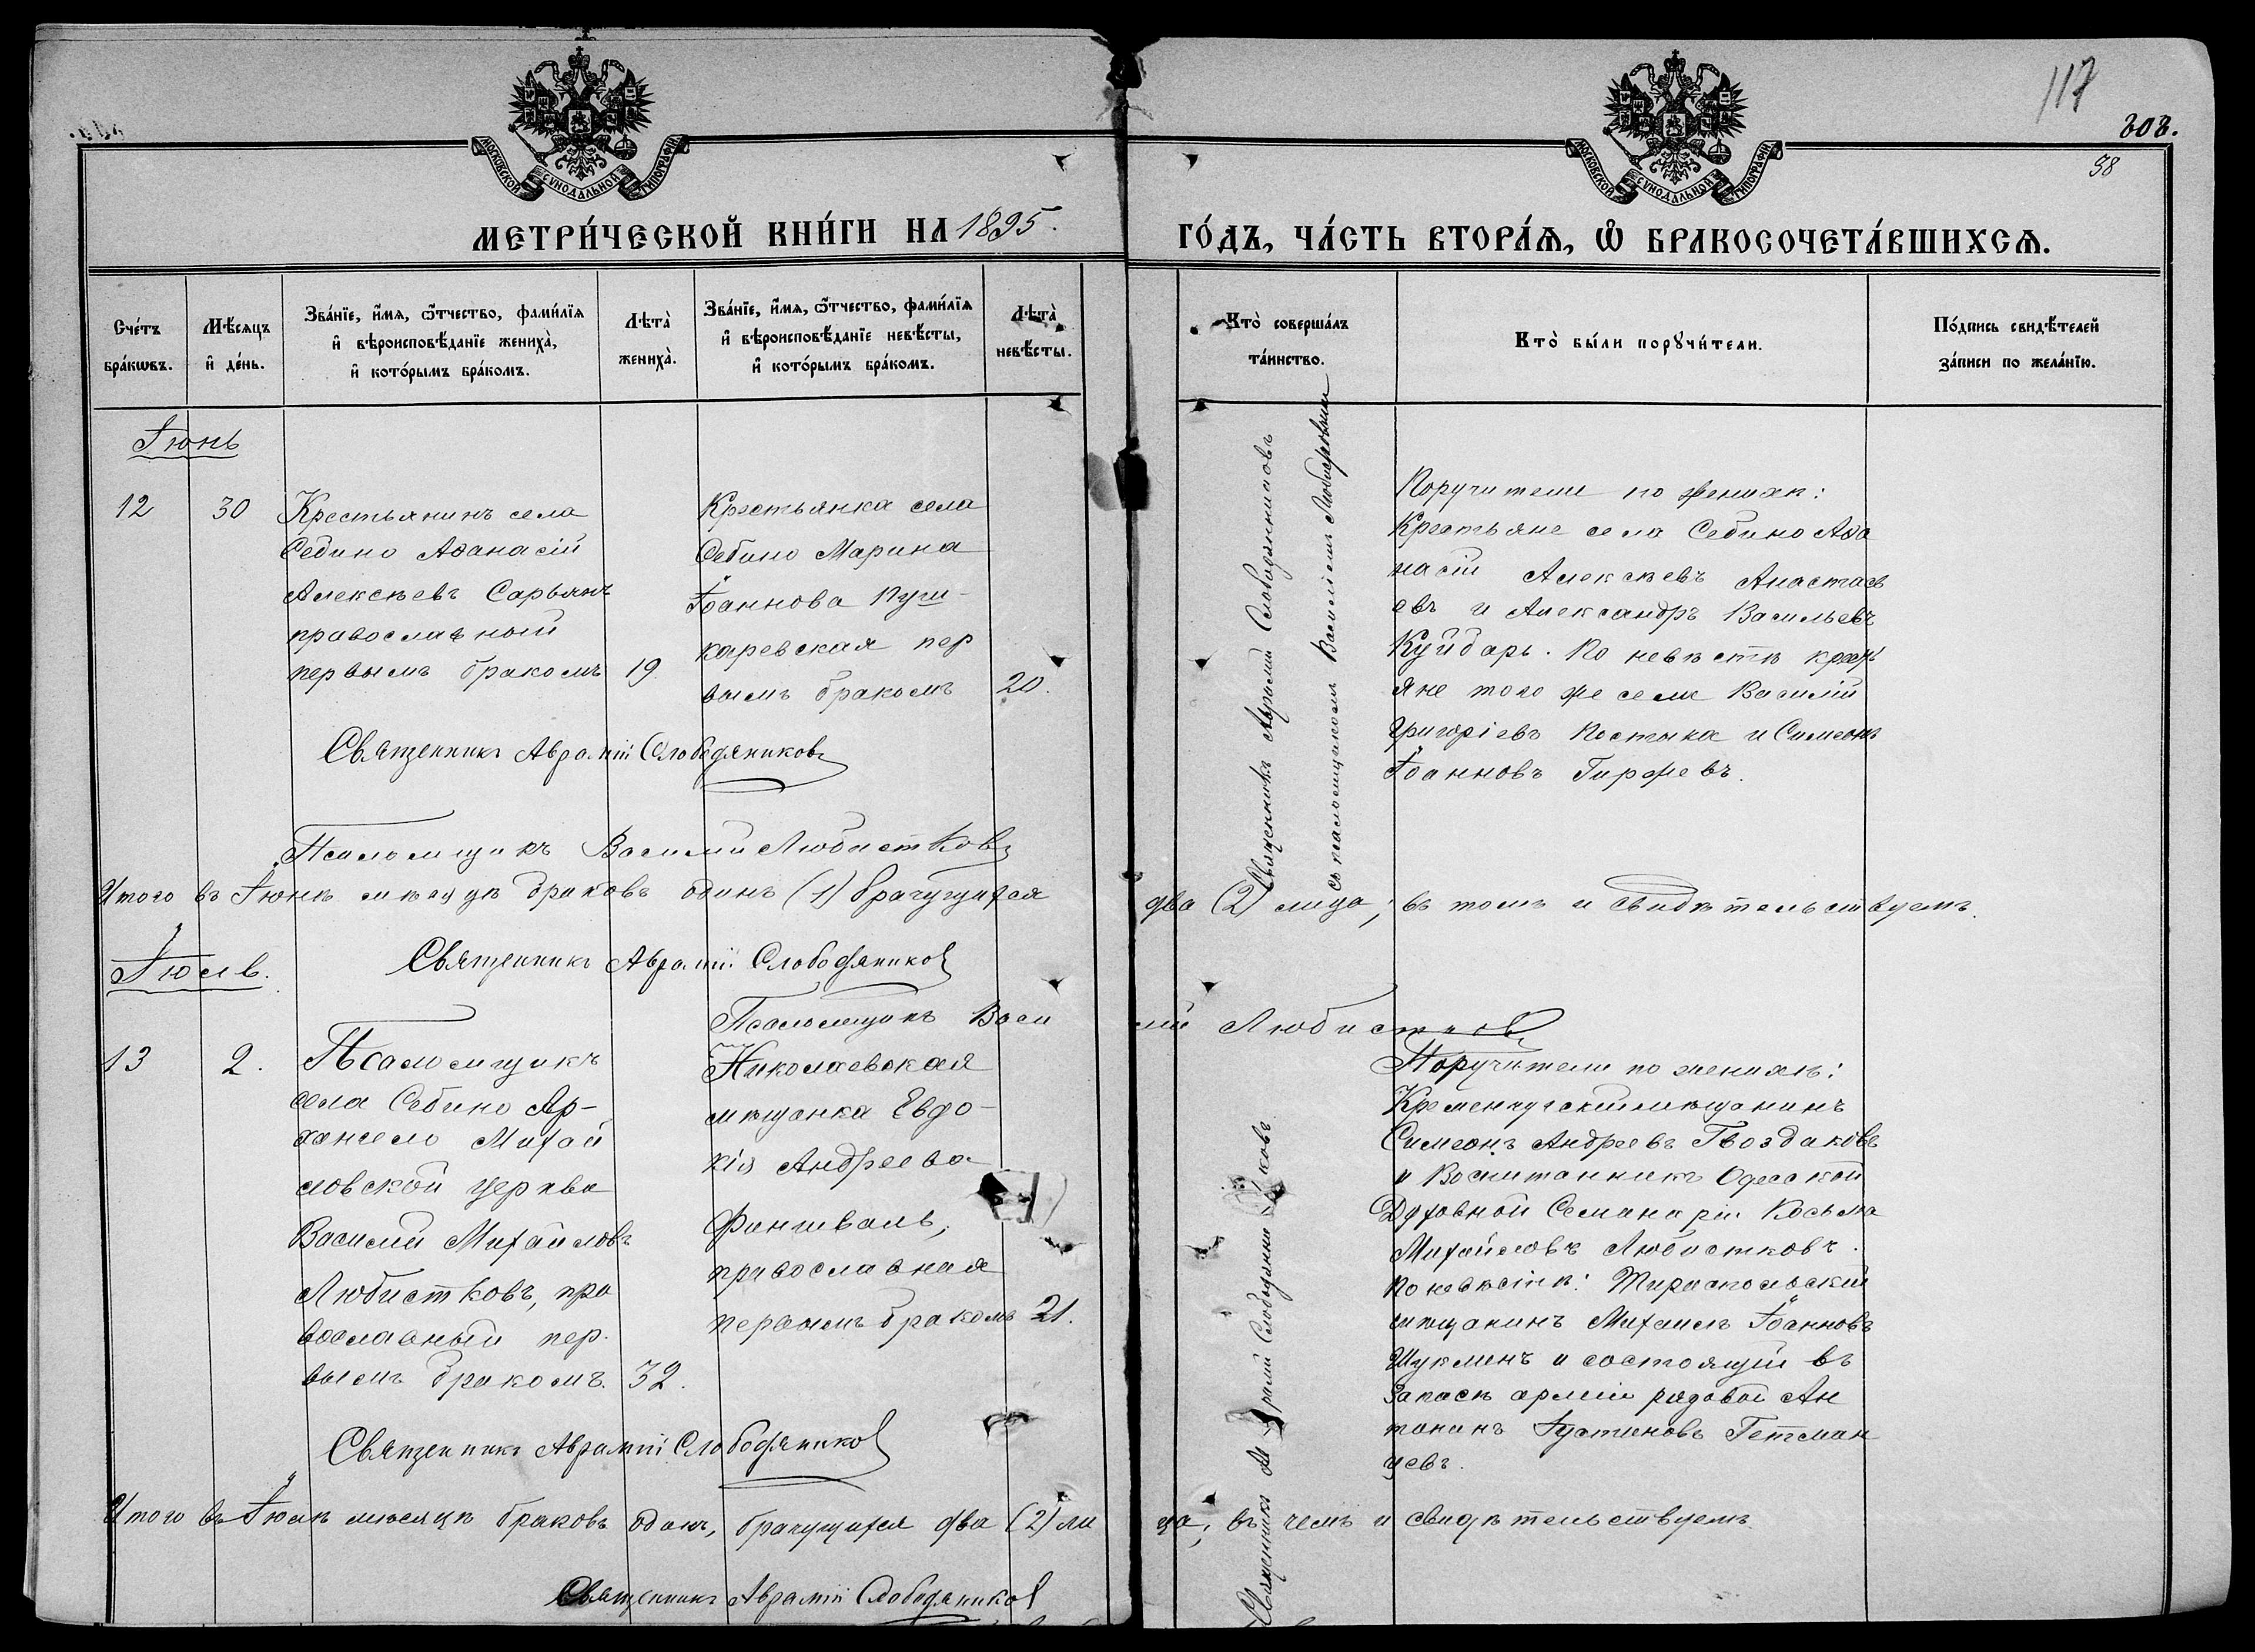 МОСКОВСКОЙ СѴНОДАЛЬНОЙ ТИПОГРАФІИ
МОСКОВСКОЙ СѴНОДАЛЬНОЙ ТИПОГРАФІИ
117
303.
58
МЕТРИ́ЧЕСКОЙ КНИ́ГИ НА 1895.
ГО́ДЪ, ЧА́СТЬ ВТОРА́Ѧ, Ѽ БРАКОСОЧЕТА́ВШИХСѦ.
Сче́тъ
бра́кѡвъ.
Мѣ́сяцъ
и҆ де́нь.
Зва́нїе, и҆́мѧ, ѻ҆́тчество, фамі́лїѧ
и҆ вѣроисповѣ́данїе жениха̀,
и҆ кото́рымъ бра́комъ.
Лѣта̀
жениха̀.
Зва́нїе, и҆́мѧ, ѻ҆́тчество, фамі́лїѧ
и҆ вѣроисповѣ́данїе невѣ́сты,
и҆ кото́рымъ бра́комъ.
Лѣта̀
невѣ́сты.
Кто̀ соверша́лъ
та́инство.
Кто̀ бы́ли порꙋчи́тели.
По́дпись свидѣ́телей
за́писи по жела́нїю.
Іюнь
12
30
Крестьянинъ села
Себино Аѳанасій
Алексѣевъ Сарьянъ
православный
первымъ бракомъ
19
Крестьянка села
Себино Марина
Іоаннова Пуш-
каревская пер
вымъ бракомъ
20.
Священникъ Аврамій Слободяниковъ
съ псаломщикомъ Василіемъ Любистковымъ
Поручители по женихѣ:
Крестьяне села Себино Аѳа
насій Алексѣевъ Анастась
евъ и Александръ Васильевъ
Куйбарь. По невѣстѣ крест
яне того же села Василій
Григоріевъ Костыка и Симеонъ
Іоанновъ Гиржевъ.
Священникъ Аврамій Слободяниковъ
Псаломщикъ Василій Любистковъ
Итого въ Іюнѣ мѣсяцѣ браковъ одинъ (1) брачущихся
два (2) лица; въ томъ и свидѣтельствуемъ.
Священникъ Аврамій Слободяниковъ
Псаломщикъ Васи
лій Любистковъ
Іюль.
13
2.
Псаломщикъ
села Себино Ар-
хангело Михай
ловской церкви
Василій Михайловъ
Любистковъ, пра
вославный пер.
вымъ бракомъ.
32.
Николаевская
мѣщанка Евдо-
кія Андреева
православная
первымъ бракомъ
21.
Священникъ
Поручители по женихѣ:
Кременчугскій мѣщанинъ
Симеонъ Андреевъ Гвоздаковъ
и Воспитанникъ Одесской
Духовной Семинаріи Косьма
Михайловъ Любистковъ.
по невѣстѣ: Тираспольскій
мѣщанинъ Михаилъ Іоанновъ
Шуклинъ и состоящій въ
Запасѣ арміи рядовой Ан
тонинъ Іустиновъ Гетман
цевъ.
Священникъ Аврамій Слободяниковъ
Итого въ Іюлѣ мѣсяцѣ браковъ одинъ, брачущихся два (2) ли
ца, въ чемъ и свидѣтельствуемъ.
Священникъ Аврамій Слободяниковъ